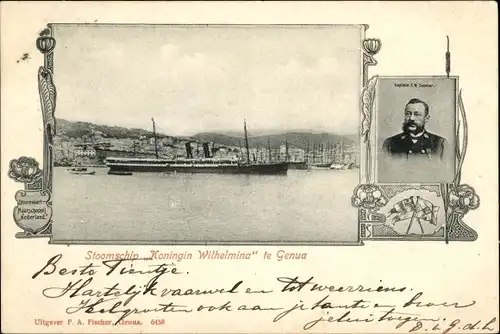 Kapitein
Stoomvaart-
Maatschappij
Nederland.
Stoomschip „Koningin Wilhelmina" te Genua
Beste Tientje.
Hartelijk vaarwel en tot weerziens.
Hele groeten ook aan je tante en
Uitgever F. A. Fischer, Genua. 6458